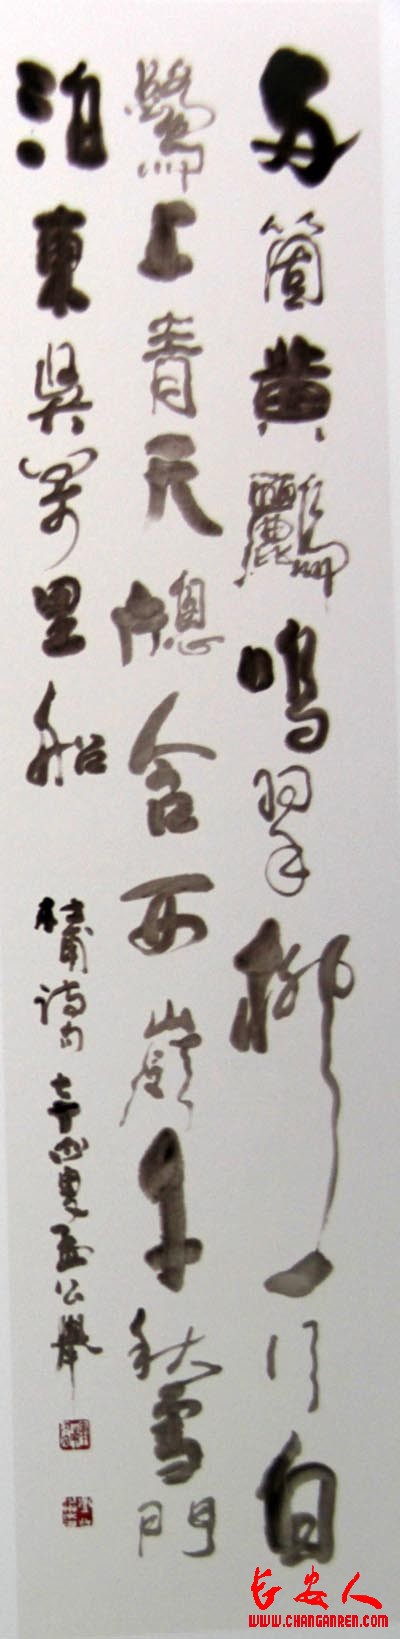 兩箇黄鸝鳴翠柳一行白
鷺上青天牕含西嶺千秋雪門
泊東吳萬里船
杜甫詩句
长安人
WWW.CHANGANREN.COM